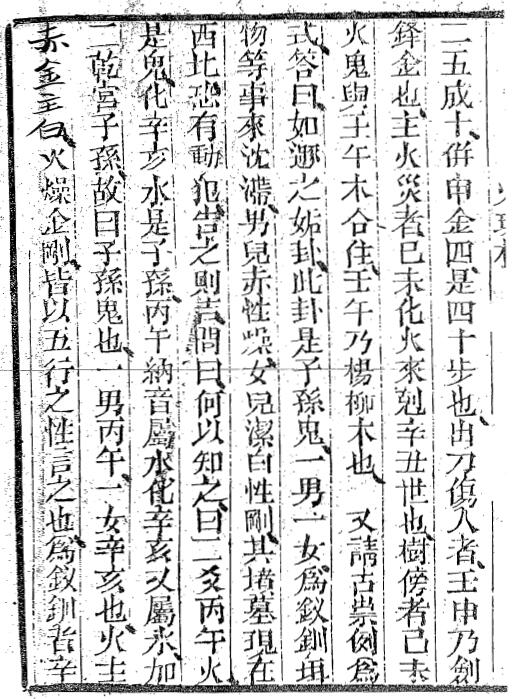 二五成十併申金四是四十步也出刀傷人者壬申乃劍
鋒金也主火災者己未化火來剋辛丑世也樹傍者己未
火鬼與壬午木合住壬午乃楊柳木也　又請占祟例爲
式答曰如遯之姤卦此卦是子孫鬼一男一女爲釵釧珥
物等事來沈滯男兒赤性燥女兒潔白性剛其墳墓現在
西北恐有動犯告之則吉問曰何以知之曰二爻丙午火
是鬼化辛亥水是子孫丙午納音屬水化辛亥又屬水加
二乾宮子孫故曰子孫鬼也一男丙午一女辛亥也火主
赤金主白火燥金剛皆以五行之性言之也爲釵釧者辛